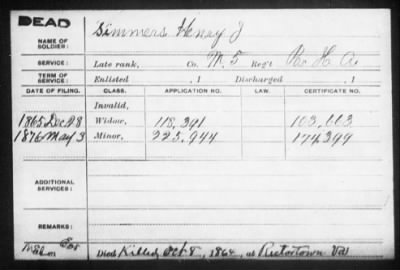 DEAD
NAME OF SOLDIER: Simmers Henry J
SERVICE: Late rank, Co. M. 5 Reg't Pa. H. A.
TERM OF SERVICE: Enlisted , 1 Discharged , 1
DATE OF FILING. CLASS. APPLICATION NO. LAW. CERTIFICATE NO.
Invalid,
1865 Dec 28 Widow, 118,391 103,663
1876 May 3 Minor, 225,944 174,399
ADDITIONAL SERVICES:
REMARKS:
Died Killed Oct 8, 1864, at Rectortown Va